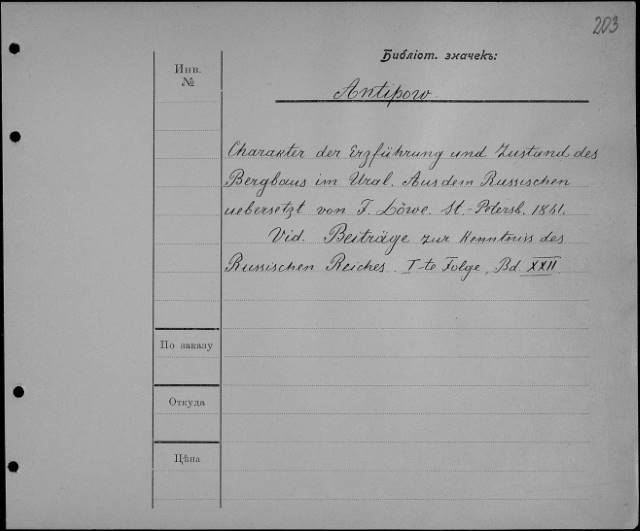 203
Библіот. значекъ:
Инв.
№
Antipow
Charakter der Erzführung und Zustand des
Bergbaus im Ural. Aus dem Russischen
uebersetzt von F. Löwe. St.-Petersb. 1861.
Vid. Beiträge zur Kenntniss des
Russischen Reiches. I-te Folge, Bd. XXII
По заказу
Откуда
Цѣна